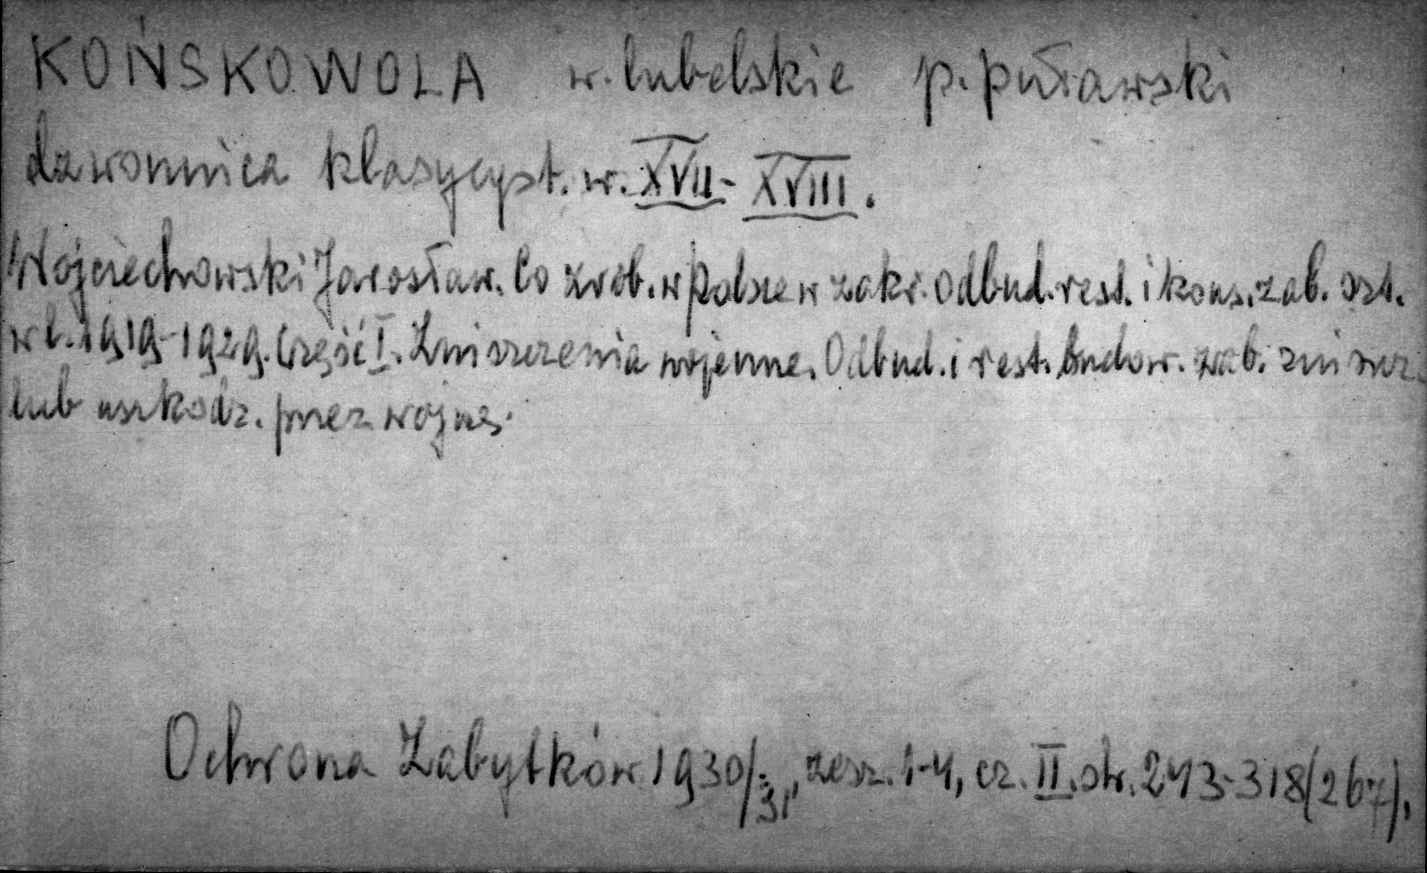 KOŃSKOWOLA w. lubelskie p. puławski
dzwonnica klasycyst. w. XVII - XVIII.
Wojciechowski Jarosław. Co zrob. w Polsce w zakr. odbud. rest. i kons. zab. szt.
w l. 1919-1929. Część I. Zniszczenia wojenne. Odbud. i rest. budow. zab. zniszcz.
lub uszkodz. przez wojnę.
Ochrona Zabytków 1930/31, zesz. 1-4, cz. II. str. 243-318 (267).